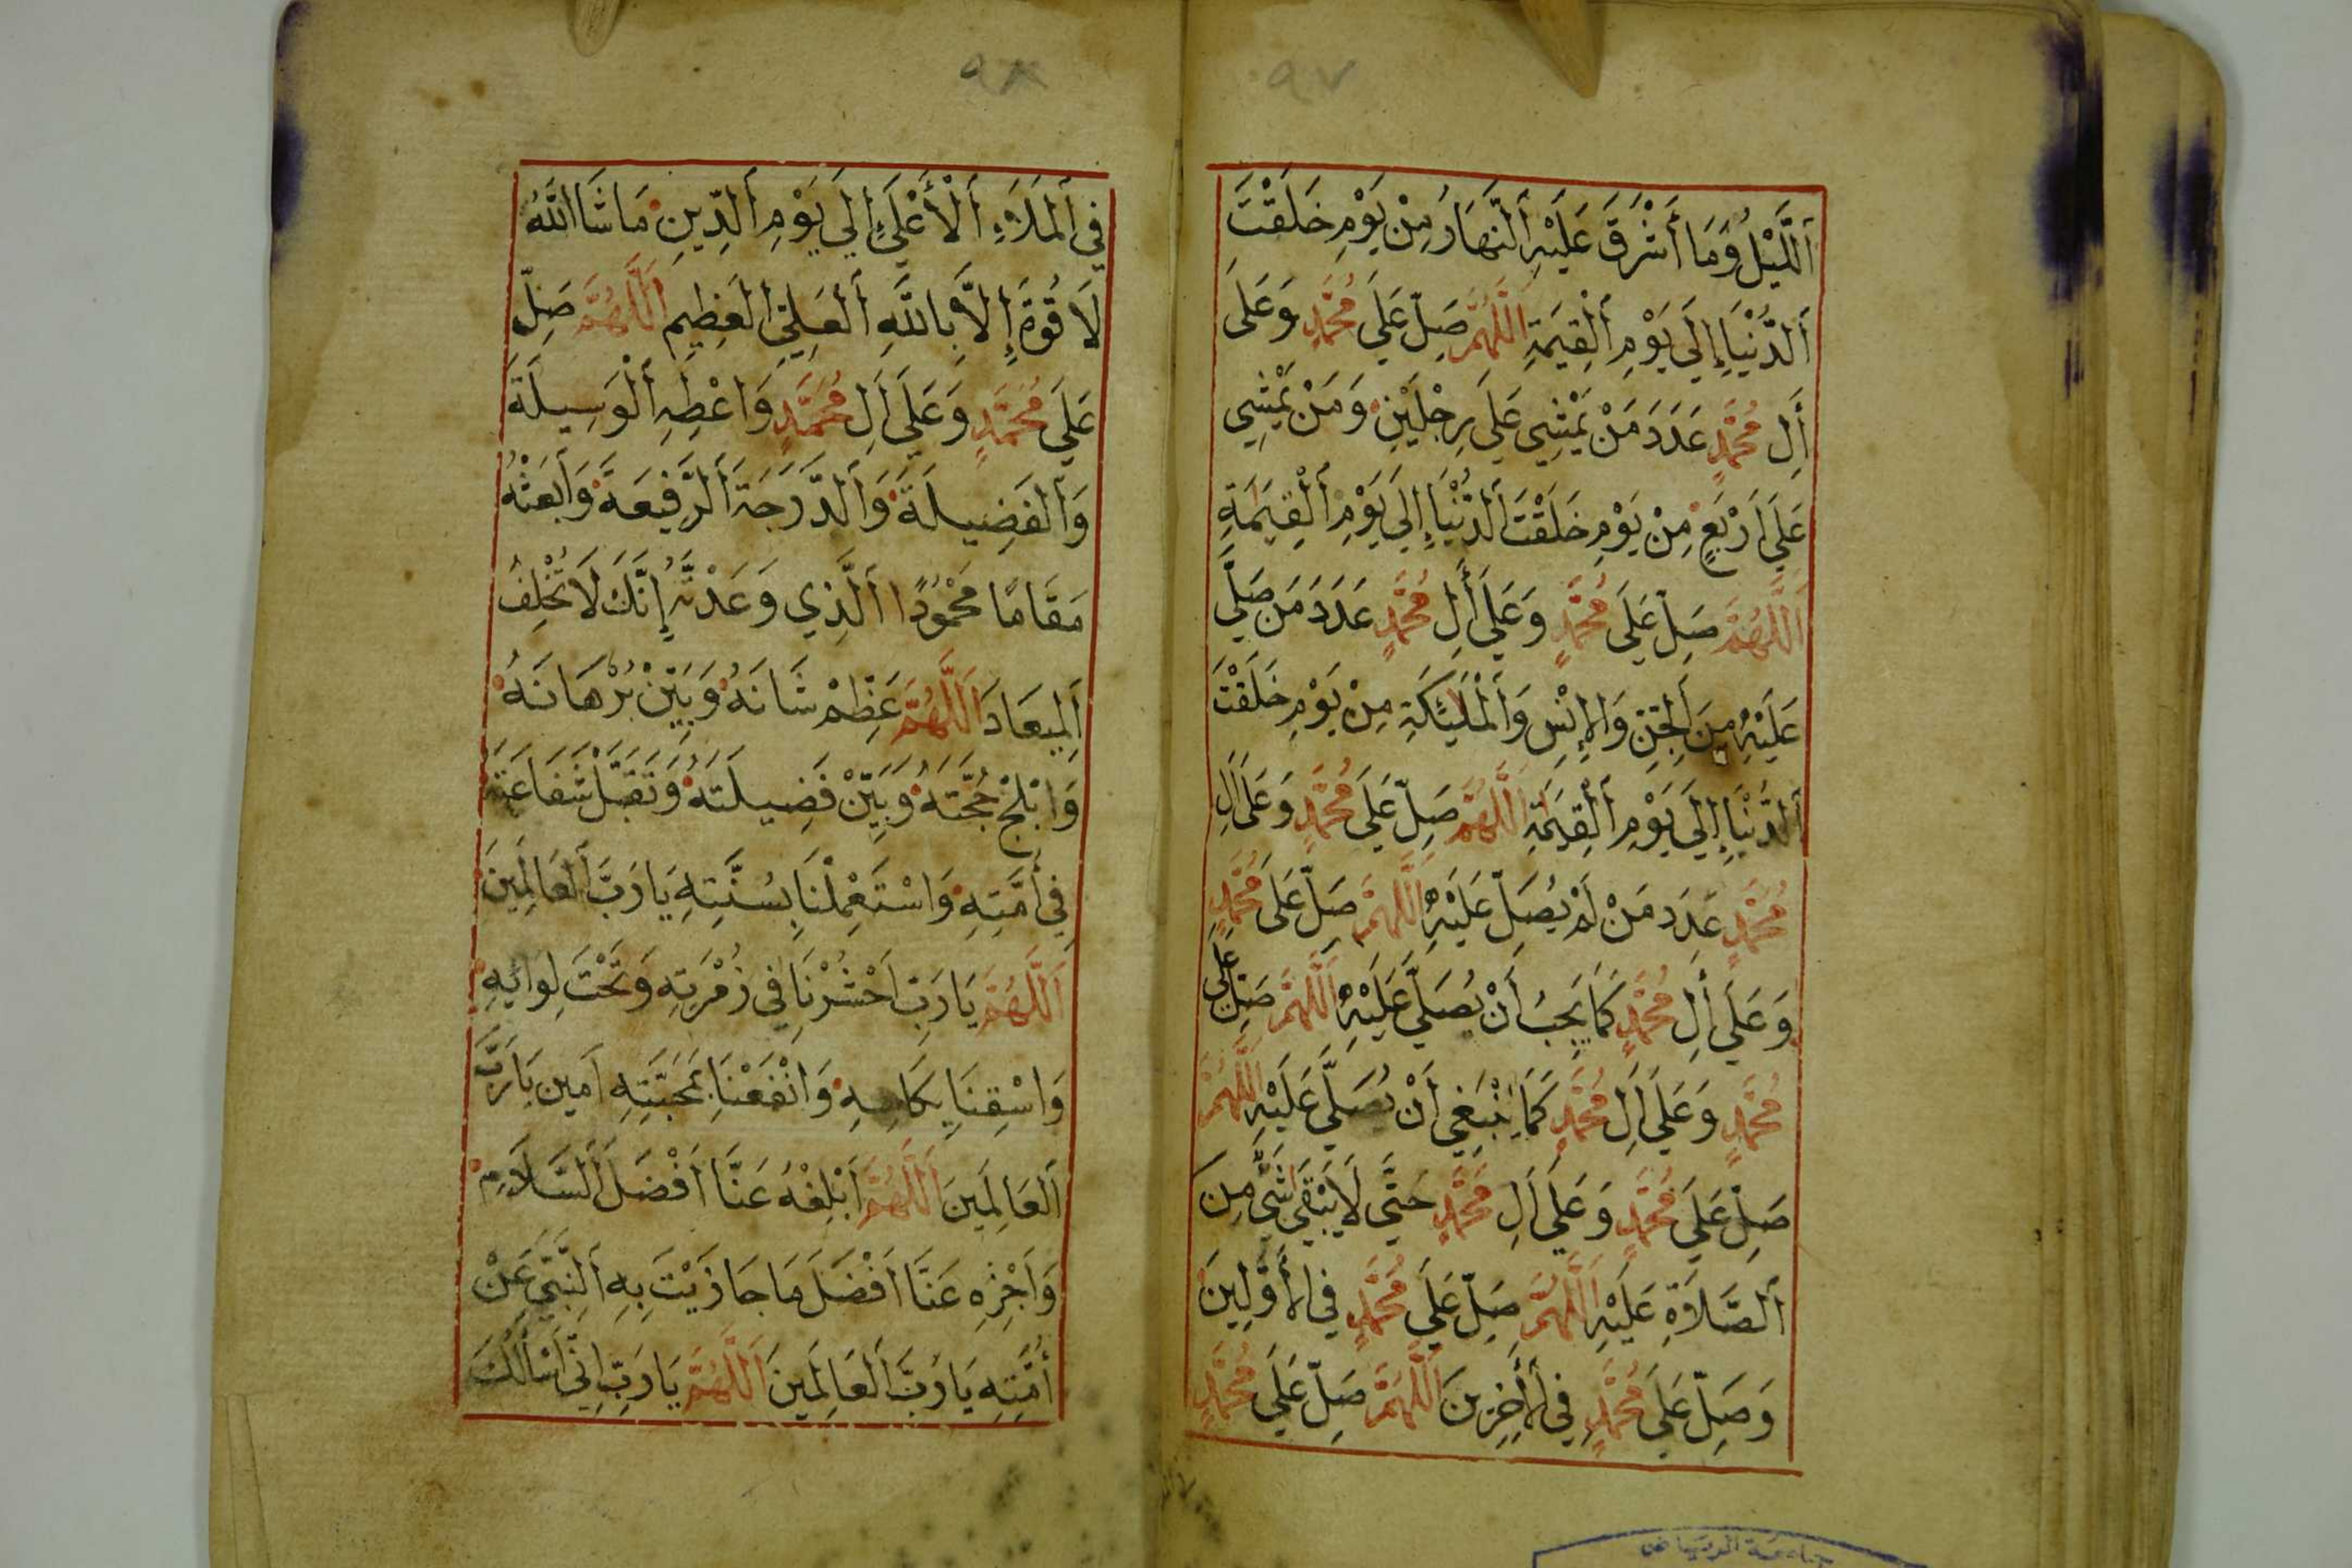 ٩٧
اَللَّيْلُ وَمَا أَشْرَقَ عَلَيْهِ اَلنَّهَارُ مِنْ يَوْمِ خَلَقْتَ
اَلدُّنْيَا إِلَى يَوْمِ اَلْقِيمَةِ اَللَّهُمَّ صَلِّ عَلَى مُحَمَّدٍ وَعَلَى
أَلِ مُحَمَّدٍ عَدَدَ مَنْ يَمْشِي عَلَى رِجْلَيْنِ وَمَنْ يَمْشِي
عَلَى اَرْبَعٍ مِنْ يَوْمِ خَلَقْتَ اَلدُّنْيَا إِلَى يَوْمِ اَلْقِيمَةِ
اَللَّهُمَّ صَلِّ عَلَى مُحَمَّدٍ وَعَلَى أَلِ مُحَمَّدٍ عَدَدَ مَنْ صَلَّى
عَلَيْهِ مِنَ اَلْجِنِّ وَالْإِنْسِ وَاَلْمَلٰئِكَةِ مِنْ يَوْمِ خَلَقْتَ
اَلدُّنْيَا إِلَى يَوْمِ اَلْقِيمَةِ اَللَّهُمَّ صَلِّ عَلَى مُحَمَّدٍ وَعَلَى اَلِ
مُحَمَّدٍ عَدَدَ مَنْ لَمْ يُصَلِّ عَلَيْهِ اَللَّهُمَّ صَلِّ عَلَى مُحَمَّدٍ
وَعَلَى أَلِ مُحَمَّدٍ كَمَا يَجِبُ أَنْ يُصَلَّى عَلَيْهِ اَللَّهُمَّ صَلِّ عَلَى
مُحَمَّدٍ وَعَلَى اَلِ مُحَمَّدٍ كَمَا يَنْبَغِي اَنْ يُصَلَّى عَلَيْهِ اَللَّهُمَّ
صَلِّ عَلَى مُحَمَّدٍ وَعَلَى اَلِ مُحَمَّدٍ حَتَّى لَا يَبْقَى شَئٌ مِنَ
اَلصَّلَاةِ عَلَيْهِ اَللَّهُمَّ صَلِّ عَلَى مُحَمَّدٍ فِي اْلأَوَّلِينَ
وَصَلِّ عَلَى مُحَمَّدٍ فِي اْلأَخِرِينَ اَللَّهُمَّ صَلِّ عَلَى مُحَمَّدٍ
جامعة الرياض
٩٨
فِي اَلْمَلَاءِ اَلْأَعْلَى إِلَى يَوْمِ اَلدِّينِ مَا شَا اَللَّهُ
لَا قُوَّةَ إِلَّا بِاللَّهِ اَلْعَلِيِّ اَلْعَظِيمِ اَللَّهُمَّ صَلِّ
عَلَى مُحَمَّدٍ وَعَلَى اَلِ مُحَمَّدٍ وَاعْطِهِ اَلْوَسِيلَةَ
وَاَلْفَضِيلَةَ وَاَلدَّرَجَةَ اَلرَّفِيعَةَ وَاَبْعَثْهُ
مَقَامًا مَحْمُودًا اَلَّذِي وَعَدْتَهُ إِنَّكَ لَا تُخْلِفُ
اَلْمِيعَادَ اَللَّهُمَّ عَظِّمْ شَانَهُ وَبَيِّنْ بُرْهَانَهُ
وَابْلِجْ حُجَّتَهُ وَبَيِّنْ فَضِيلَتَهُ وَتَقَبَّلْ شَفَاعَتَهُ
فِي أُمَّتِهِ وَاسْتَعْمِلْنَا بِسُنَّتِهِ يَا رَبَّ اَلْعَالَمِينَ
اَللَّهُمَّ يَا رَبِّ اَحْشُرْنَا فِي زُمْرَتِهِ وَتَحْتَ لِوائِهِ
وَاسْقِنَا بِكَاسِهِ وَانْفَعْنَا بِمَحَبَّتِهِ اَمِين يَا رَبَّ
اَلْعَالَمِينَ اَللَّهُمَّ اَبْلِغْهُ عَنَّا اَفْضَلَ اَلسَّلَامِ
وَاَجْزِهِ عَنَّا اَفْضَلَ مَا جَازَيْتَ بِهِ اَلنَّبِيَّ عَنْ
أُمَّتِهِ يَا رَبَّ اَلْعَالَمِينَ اَللَّهُمَّ يَا رَبِّ اِنِّي اَسْأَلُكَ